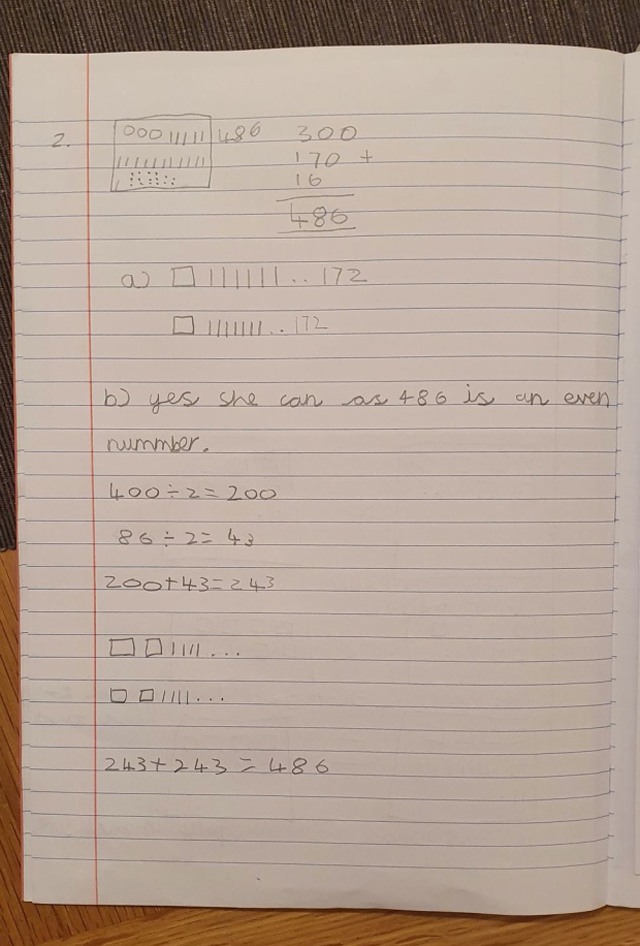 2. 000 | | | | | 486 300
| | | | | | | | | | | 170 +
| 16
486
a) □ | | | | | | | . . 172
□ | | | | | | | . . 172
b) yes she can as 486 is an even
nummber.
400 ÷ 2 = 200
86 ÷ 2 = 43
200 + 43 = 243
□ □ | | | | . . .
□ □ | | | | . . .
243 + 243 = 486